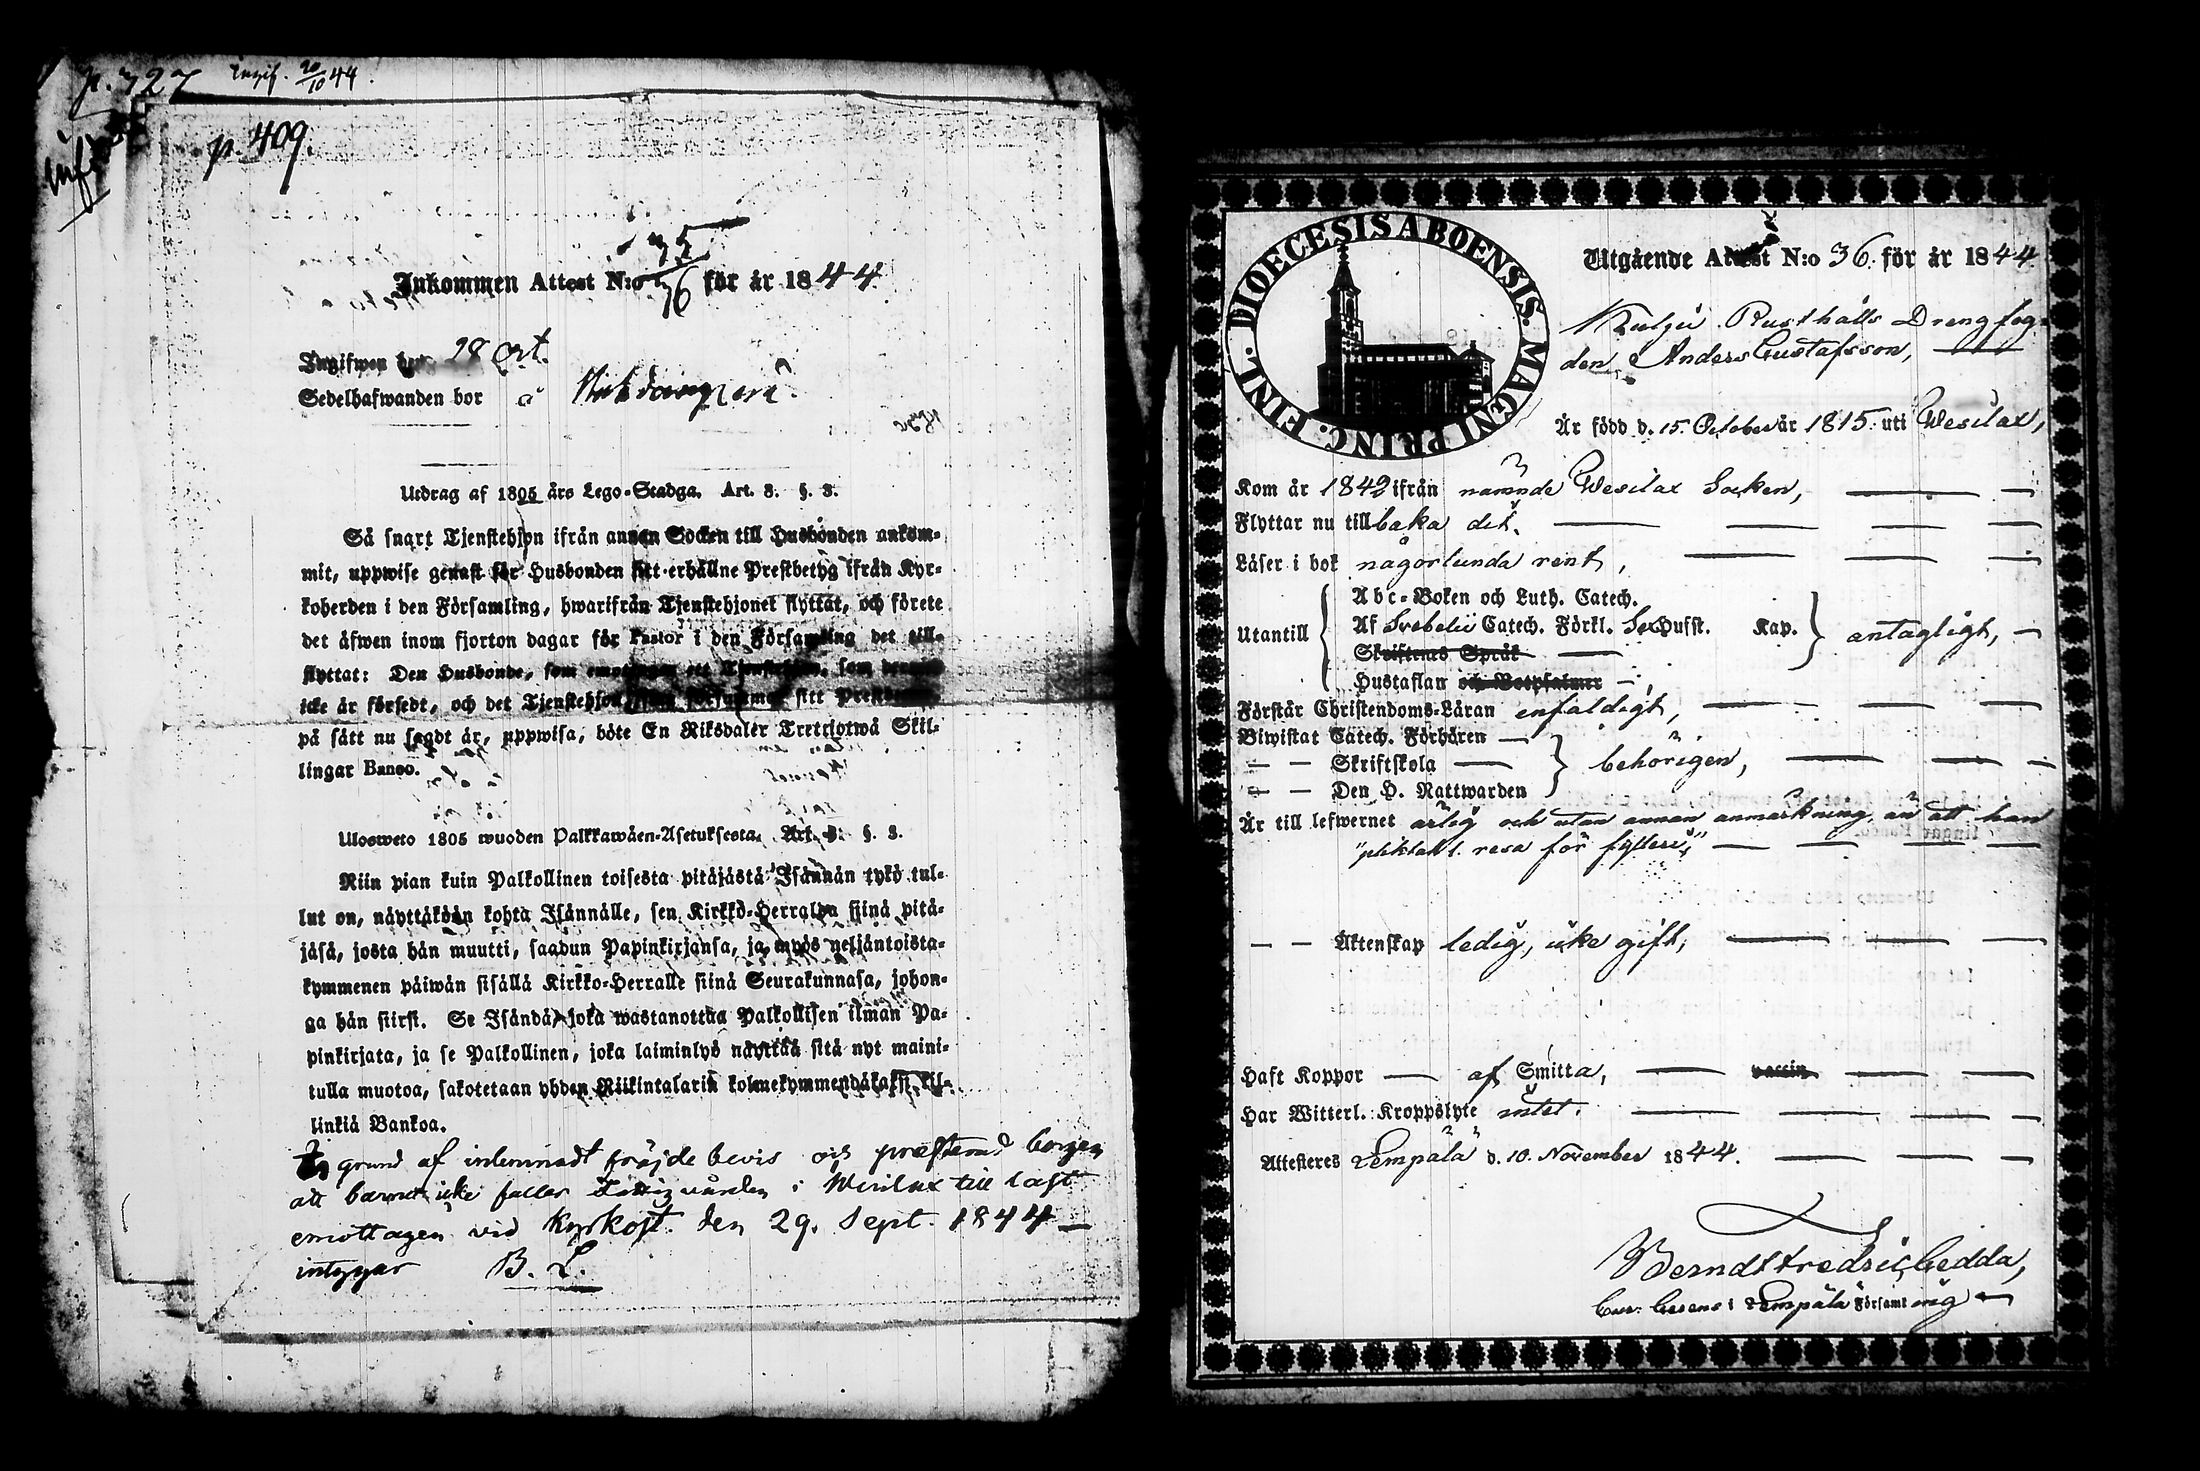 p. 727 Ingif. 20/10 44.
p. 409.
Inkommen Attest N:o 75/76 för år 1844
Ingifwen den 28 Oct.
Sedelhafwanden bor å
Utdrag af 1805 års Lego-Stadga. Art. 3. §. 3.
Så snart Tjenstehjon ifrån annan Socken till Husbonden ankom-
mit, uppwise genast för Husbonden sitt erhållne Prestbetyg ifrån Kyr-
koherden i den Församling, hwarifrån Tjenstehjonet flyttat, och förete
det äfwen inom fjorton dagar för Pastor i den Församling det till-
flyttat: Den Husbonde, som emottager ett Tjenstehjon, som dermed
icke är försedt, och det Tjenstehjon, som försummar sitt Prestbetyg
på sätt nu sagdt är, uppwisa, böte En Riksdaler Trettiotwå Skil-
lingar Banco.
Ulosweto 1805 wuoden Palkkawäen-Asetuksesta. Art. 3. §. 3.
Niin pian kuin Palkollinen toisesta pitäjästä Isännän tykö tul-
lut on, näyttäköän kohta Isännälle, sen Kirkko-Herralda siinä pitä-
jäsä, josta hän muutti, saadun Papinkirjansa, ja myös neljäntoista-
kymmenen päiwän sisällä Kirkko-Herralle siinä Seurakunnasa, johon-
ga hän siirsi. Se Isändä, joka wastanottaa Palkollisen ilman Pa-
pinkirjata, ja se Palkollinen, joka laiminlyö näyttää sitä nyt maini-
tulla muotoa, sakotetaan yhden Riikintalarin kolmekymmendäkaksi kil-
linkiä Bankoa.
grund af inlemnadt fräjde bevis och præsterad borgen
att barnet icke faller Fattigvården i Wesilax till last
emottagen vid Kyrkost. den 29. Sept. 1844 —
intygar B. L.
DIOECESIS ABOENSIS. MAGNI PRINC. FINL.
Utgående Attest N:o 36. för år 1844
Kulju Rusthålls Drengfog-
den, Anders Gustafsson, —
Är född d. 15. October år 1815. uti Wesilax,
Kom år 1843 ifrån nämnde Wesilax Socken, —
Flyttar nu tillbaka dit. —
Läser i bok någorlunda rent, —
Abc-Boken och Luth. Catech.
Utantill Af Svebelii Catech. Förkl. Sex Hufst. Kap. antagligt, —
Skriftenes Språk —
Hustaflan och Botpsalmer —
Förstår Christendoms-Läran enfaldigt, —
Biwistat Catech. Förhören —
— — Skriftskola — behörigen, —
— — Den H. Nattwarden
Är till lefwernet ärlig och utan annan anmärkning, än att han
"pliktat 1. resa för fylleri," —
— — Äktenskap ledig, icke gift, —
Haft Koppor — af Smitta, — vaccin —
Har Witterl. Kroppslyte intet. —
Attesteres Lempälä d. 10. November 1844. —
Berndt Fredric Gedda,
i Lempälä Församling —